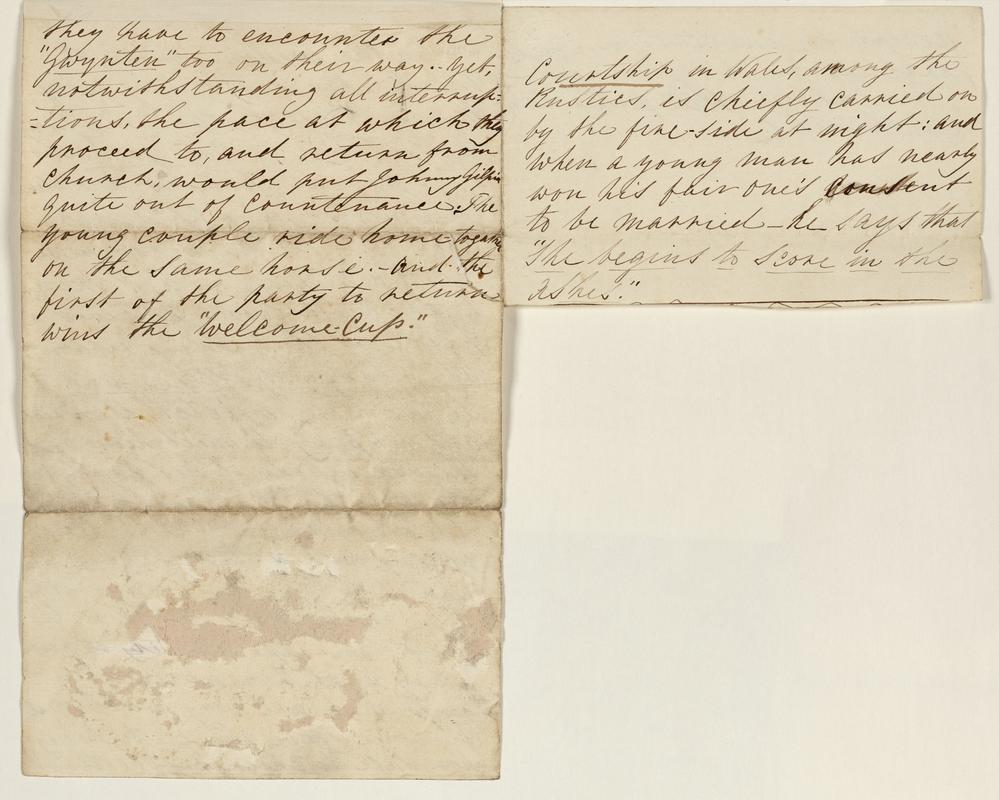 they have to encounter the
"Gwynten" too on their way.. Yet,
notwithstanding all interrup-
-tions, the pace at which they
proceed to, and return from
Church, would put Johnny Gilpin
quite out of Countenance. The
young couple ride home together
on the same horse. - and the
first of the party to return
wins the "Welcome-Cup."
Courtship in Wales, among the
Rustics, is chiefly carried on
by the fire-side at night: and
when a young man has nearly
won his fair one's consent
to be married - he says that
"She begins to score in the
Ashes."